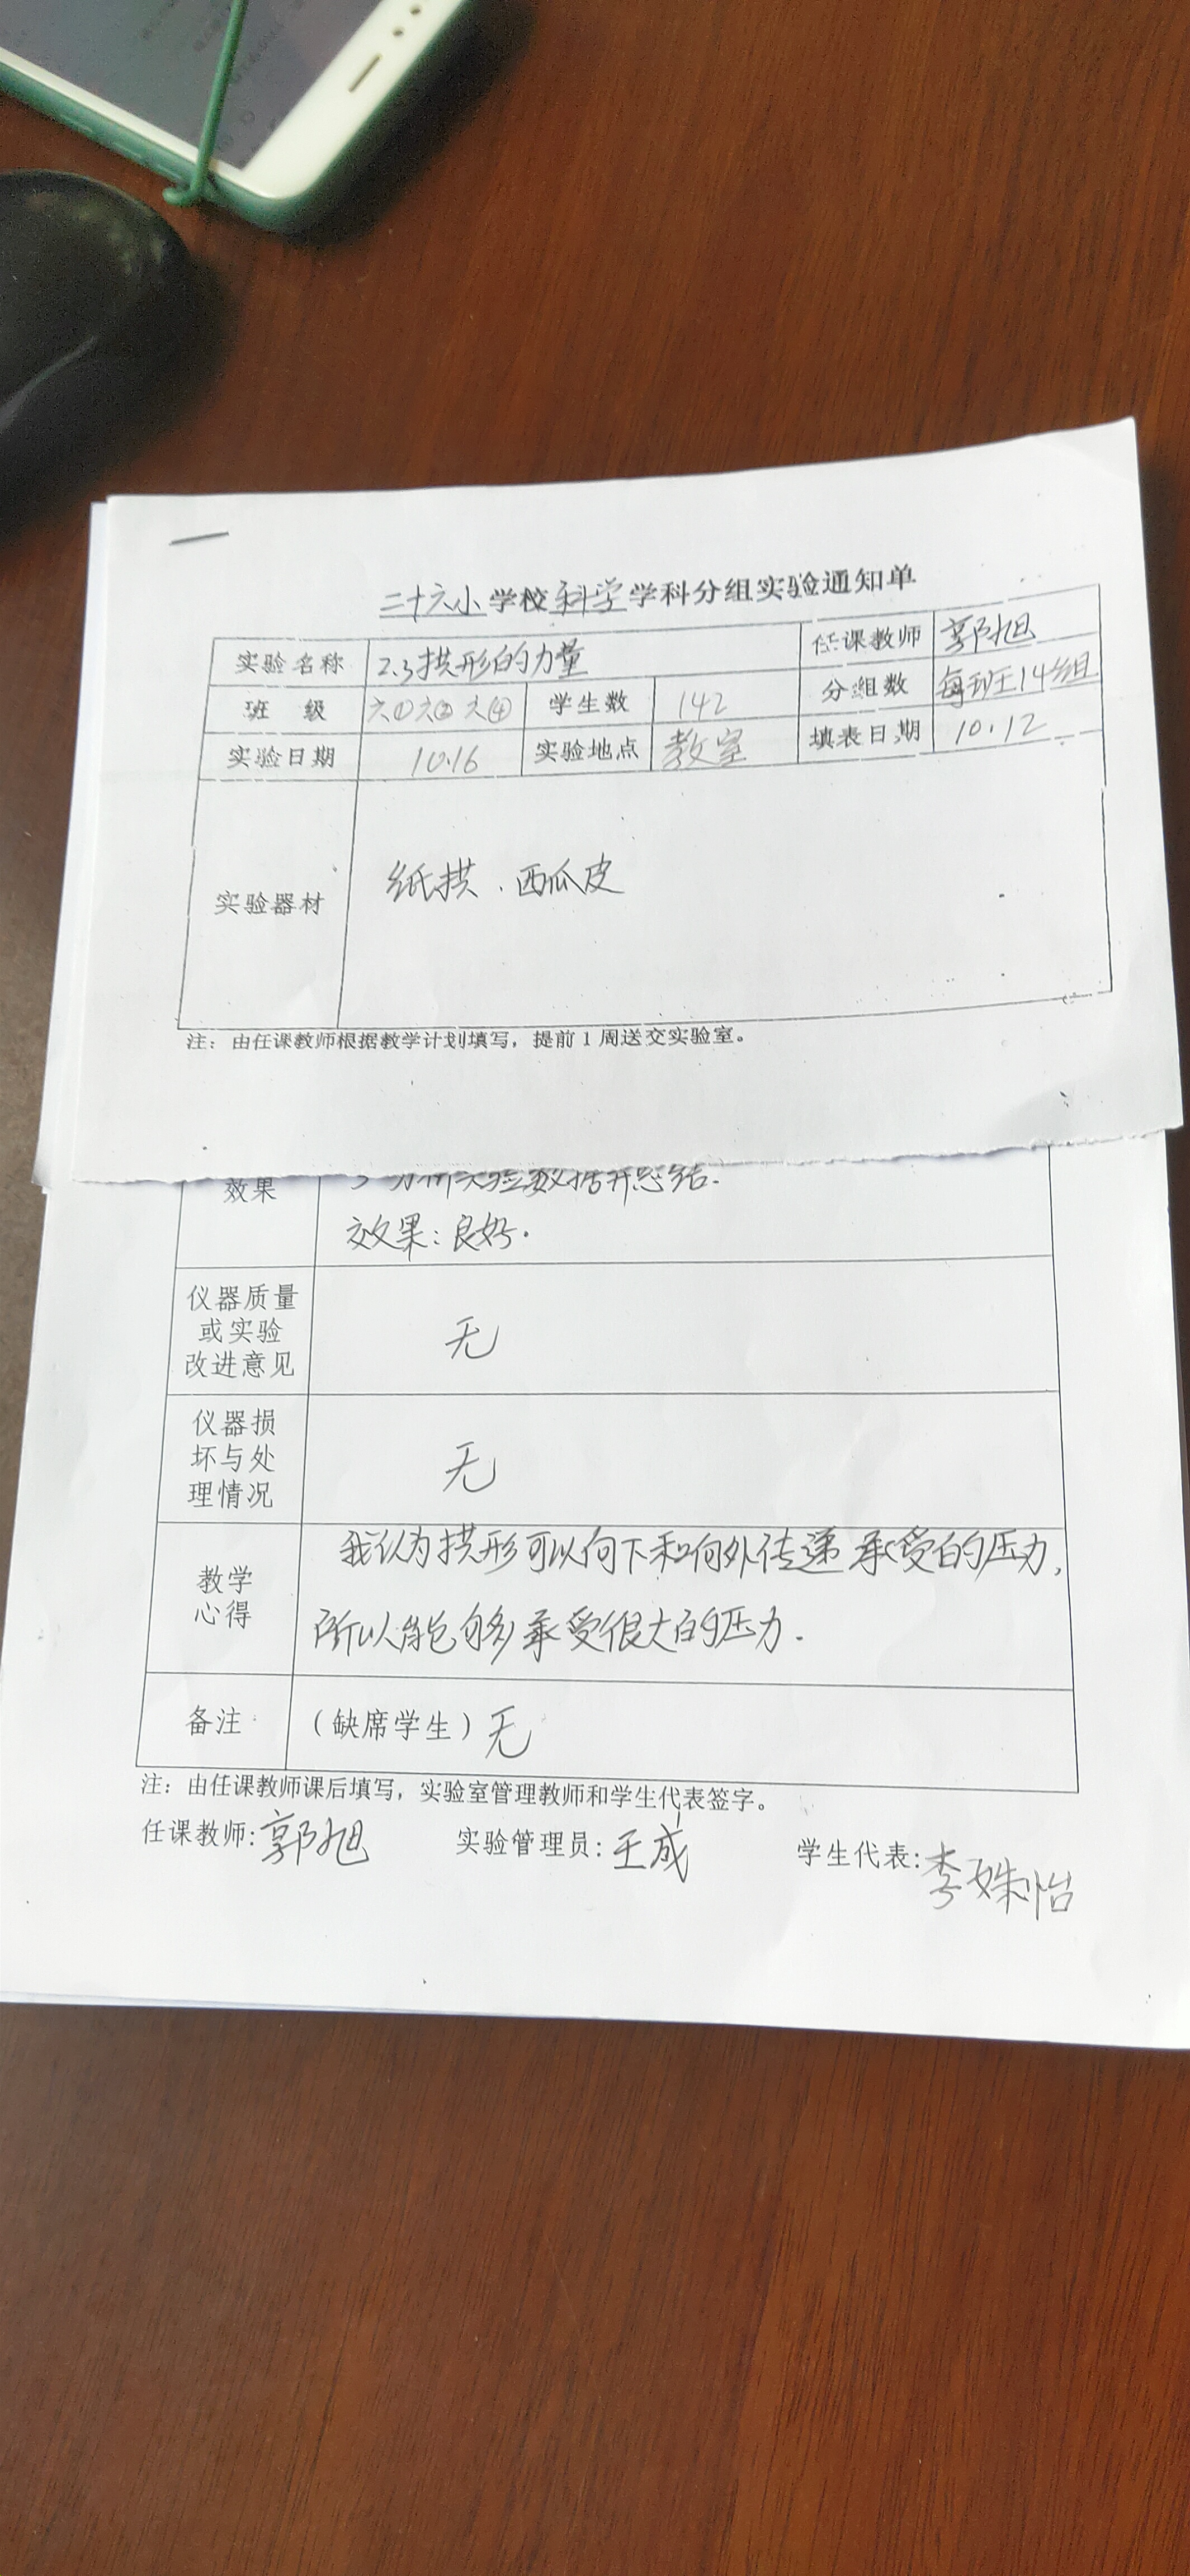 二十六小学校科学学科分组实验通知单
实验名称 2.3拱形的力量 任课教师 郭旭
班 级 六① 六② 六④ 学生数 142 分组数 每班14组
实验日期 10.16 实验地点 教室 填表日期 10.12
实验器材 纸拱、西瓜皮
注：由任课教师根据教学计划填写，提前1周送交实验室。
3 分析实验数据并总结.
效果 效果：良好.
仪器质量
或实验
改进意见 无
仪器损
坏与处
理情况 无
教学
心得
我认为拱形可以向下和向外传递承受的压力，
所以能够承受很大的压力.
备注 （缺席学生）无
注：由任课教师课后填写，实验室管理教师和学生代表签字。
任课教师：郭旭 实验管理员：王成 学生代表：李姝怡